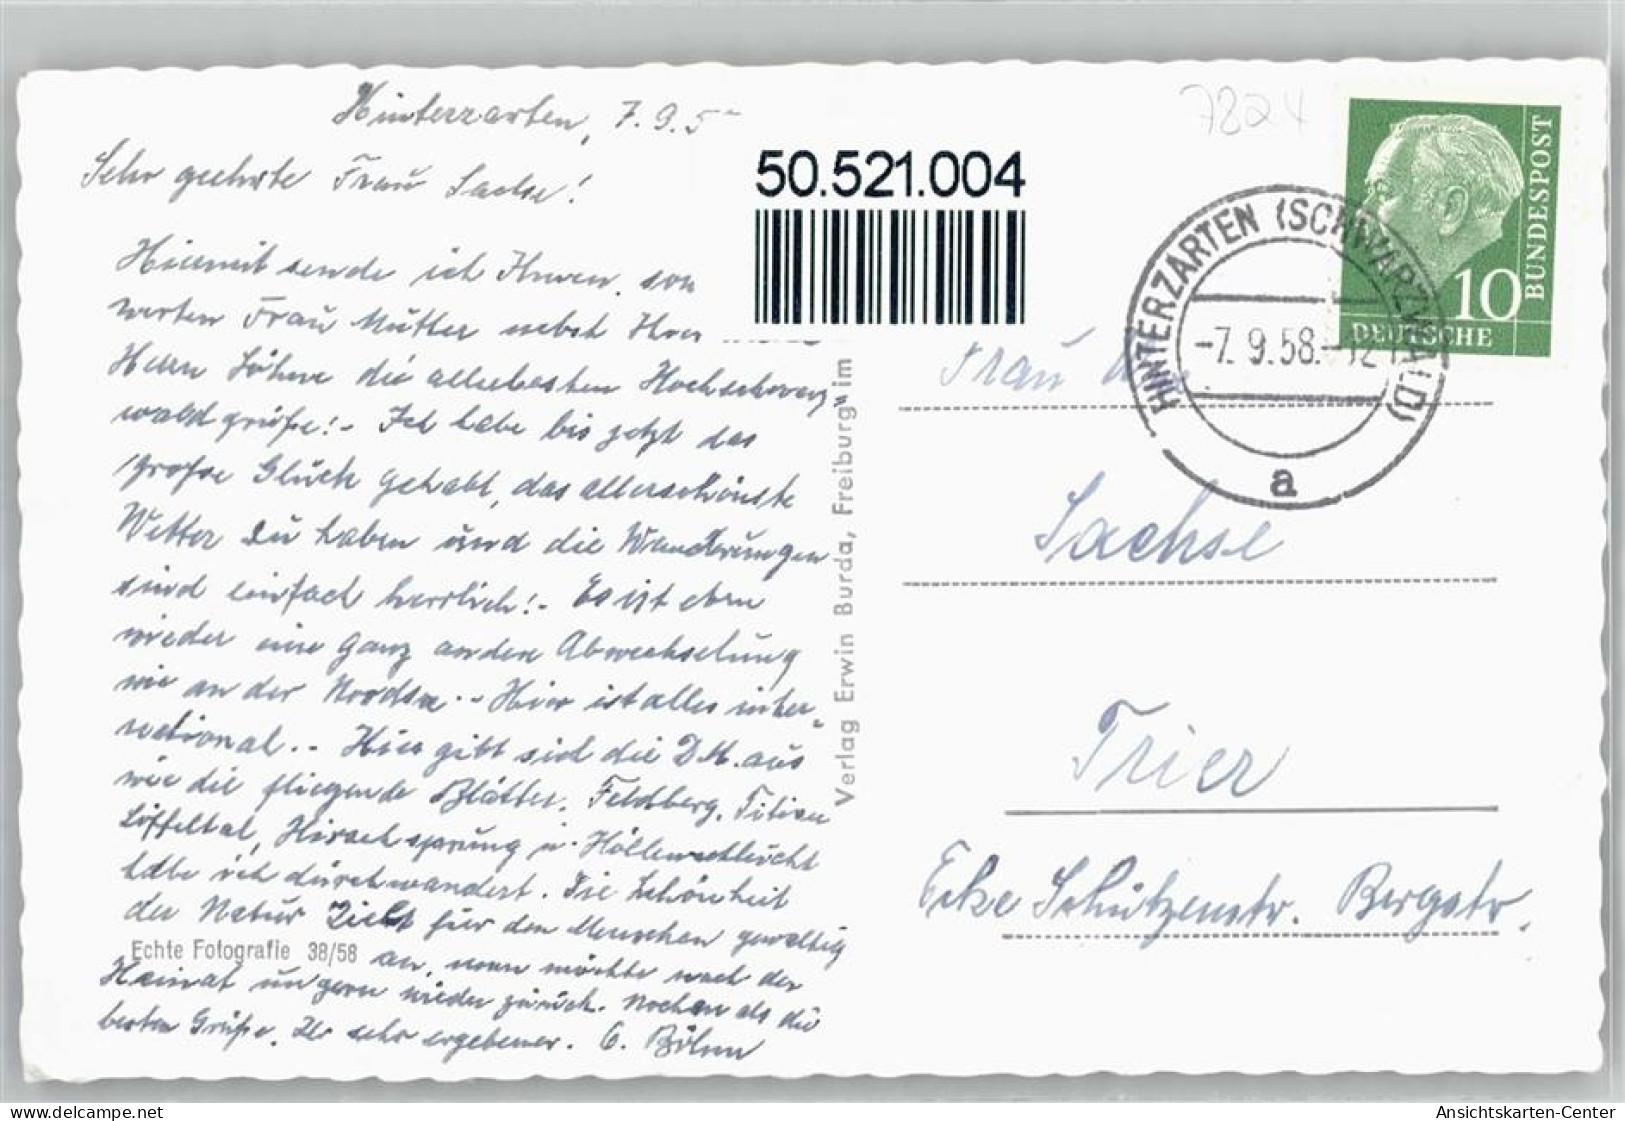 Hinterzarten, 7.9.5
Sehr geehrte Frau Sachse!
Hiermit sende ich Ihnen,
werten Frau Mutter nebst
Herrn Söhne die allerbesten Hochschwarz=
waldgrüße!- Ich habe bis jetzt das
große Glück gehabt, das allerschönste
Wetter zu haben und die Wanderungen
sind einfach herrlich!- Es ist eben
wieder eine ganz andere Abwechselung
wie an der Nordsee.- Hier ist alles inter=
national.- Hier gibt sich die D.M. aus
wie die fliegende Blätter. Feldberg, Titisee
Löffeltal, Hirschsprung u. Höllenschlucht
habe ich durchwandert. Die Schönheit
der Natur zieht für den Menschen gewaltig
Echte Fotografie 38/58
an, man möchte nach der
Heimat ungern wieder zurück. Nochmals die
besten Grüße. Ihr sehr ergebener. G. Böhm
50.521.004
Verlag Erwin Burda, Freiburg im
7824
DEUTSCHE BUNDESPOST
10
HINTERZARTEN (SCHWARZWALD)
-7.9.58.-12
a
Frau
Sachse
Trier
Ecke Schützenstr. Bergstr.
www.delcampe.net
Ansichtskarten-Center